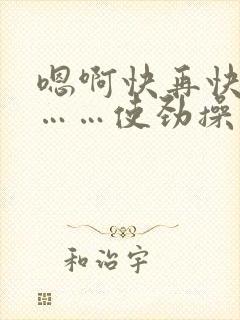 嗯啊快再快
……使劲操
和治宇